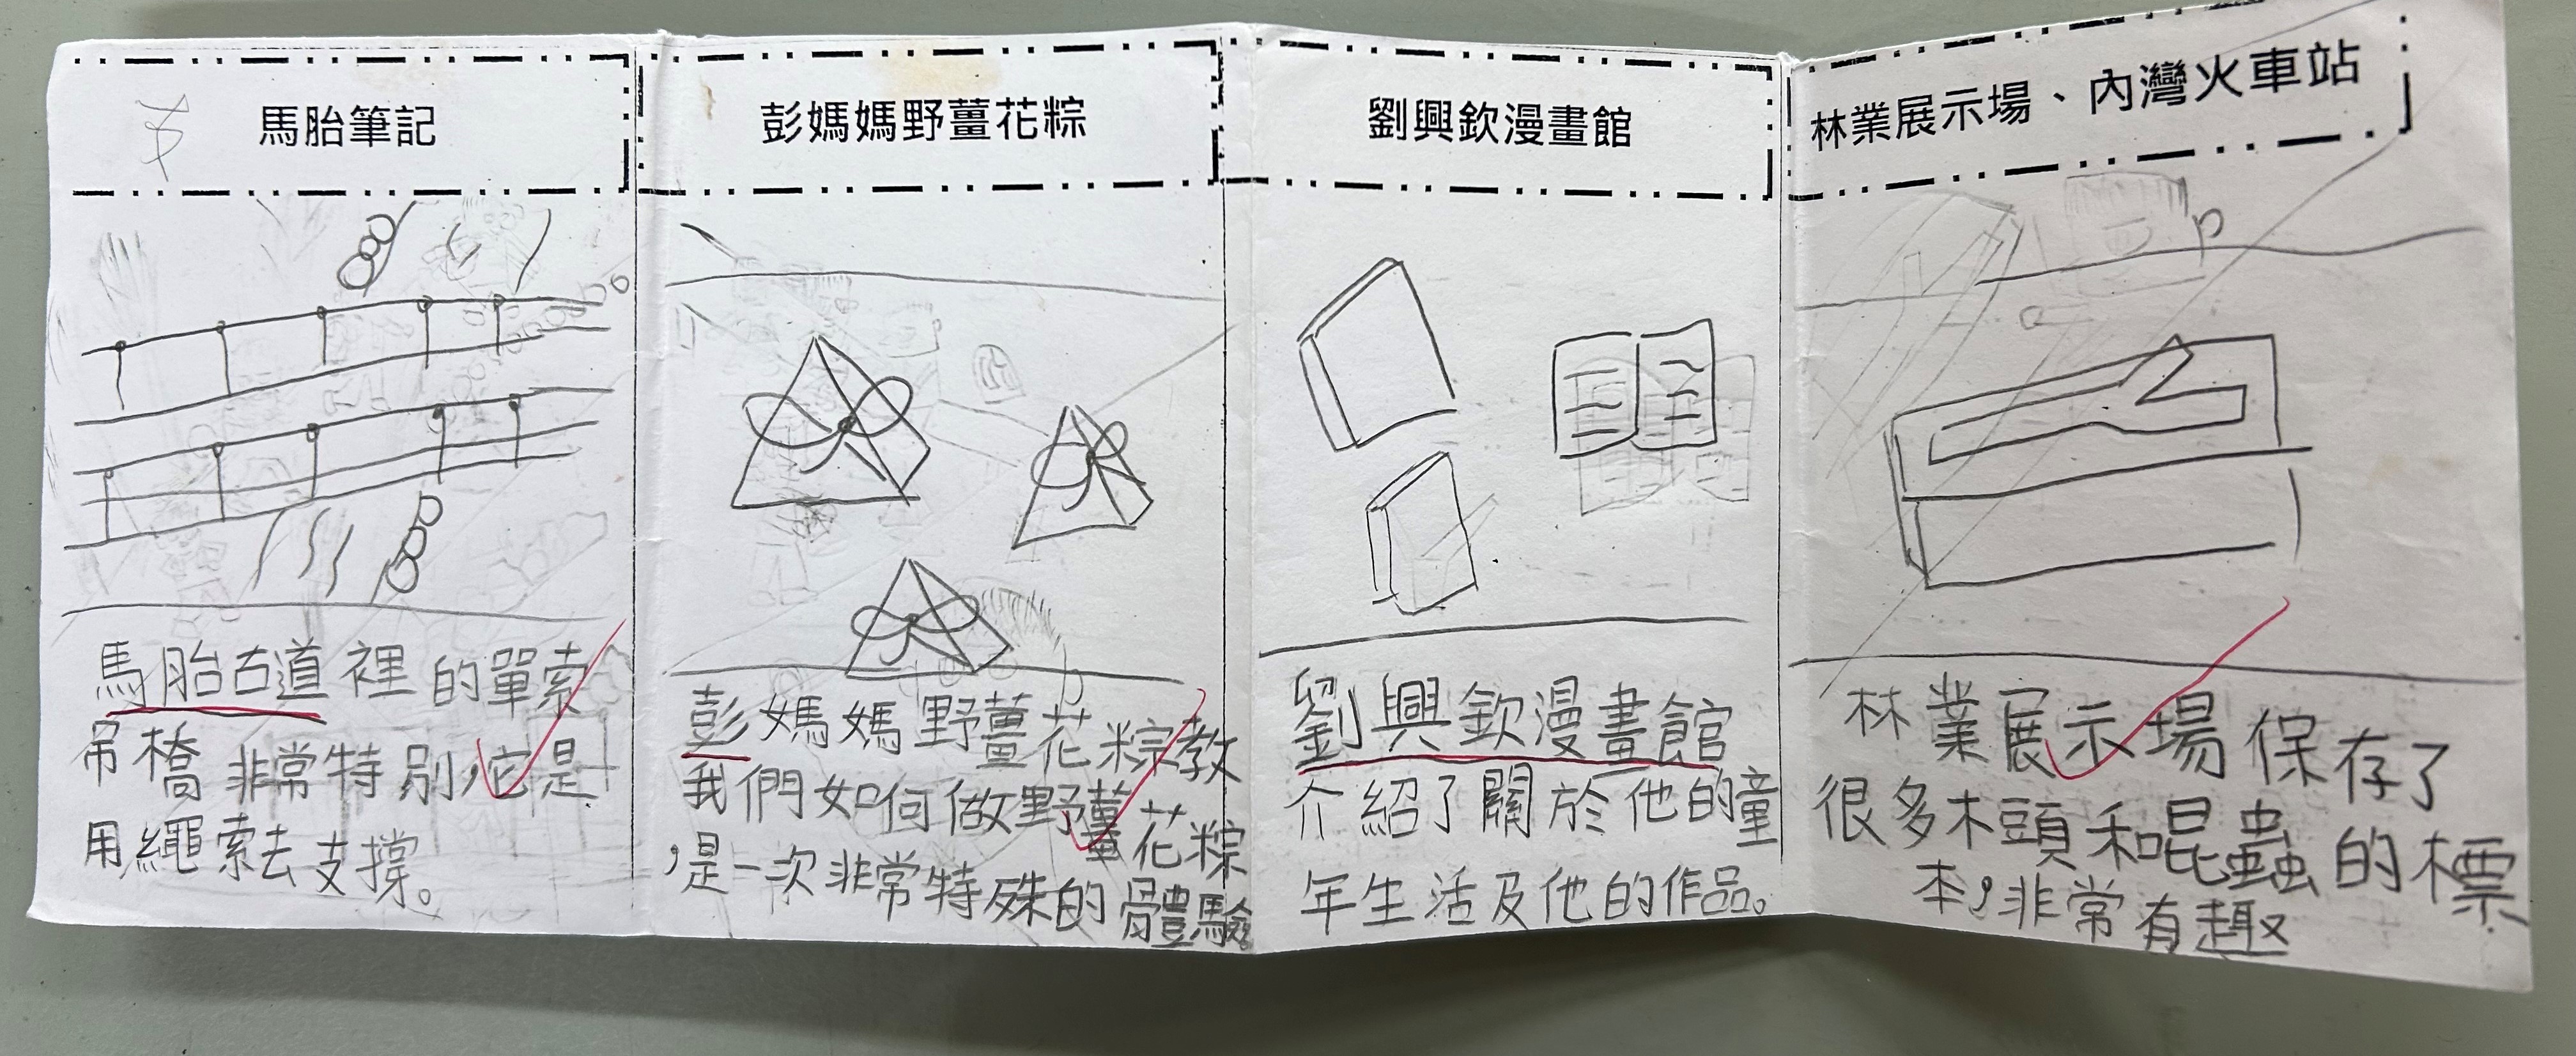 馬胎筆記
馬胎古道裡的單索
吊橋非常特別,它是
用繩索去支撐。
彭媽媽野薑花粽
彭媽媽野薑花粽教
我們如何做野薑花粽
,是一次非常特殊的體驗。
劉興欽漫畫館
劉興欽漫畫館
介紹了關於他的童
年生活及他的作品。
林業展示場、內灣火車站
林業展示場保存了
很多木頭和昆蟲的標
本,非常有趣